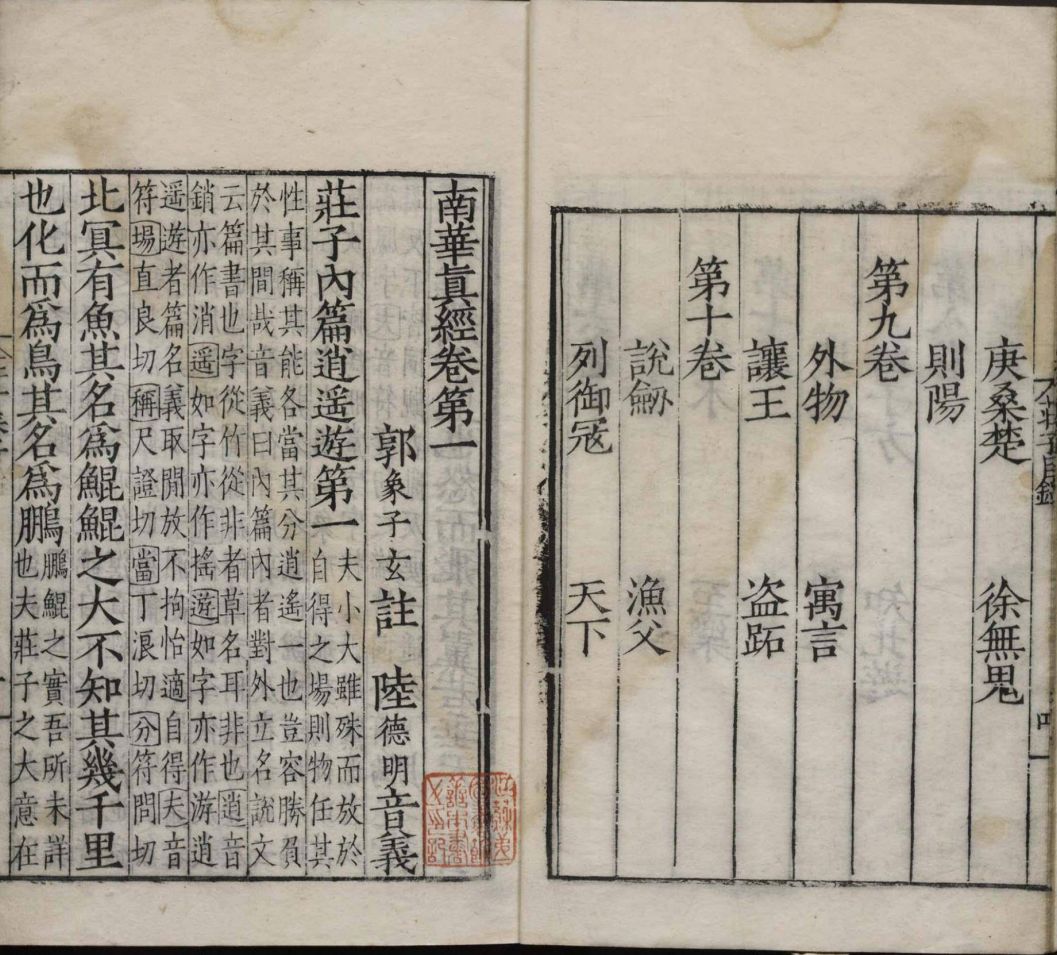 庚桑楚 徐無鬼
則陽
第九卷
外物 寓言
讓王 盗跖
第十卷
說劒 漁父
列御冦 天下
南華眞經卷第一
郭象子玄註 陸德明音義
莊子內篇逍遥遊第一 夫小大雖殊而放於
自得之場則物任其
性事稱其能各當其分逍遙一也豈容勝負
於其間哉音義曰內篇內者對外立名說文
云篇書也字從竹從非者草名耳非也逍音
銷亦作消遥如字亦作摇遊如字亦作游逍
遥遊者篇名義取閒放不拘怡適自得夫音
符場直良切稱尺證切當丁浪切分符問切
北冥有魚其名爲鯤鯤之大不知其幾千里
也化而爲鳥其名爲鵬 鵬鯤之實吾所未詳
也夫莊子之大意在